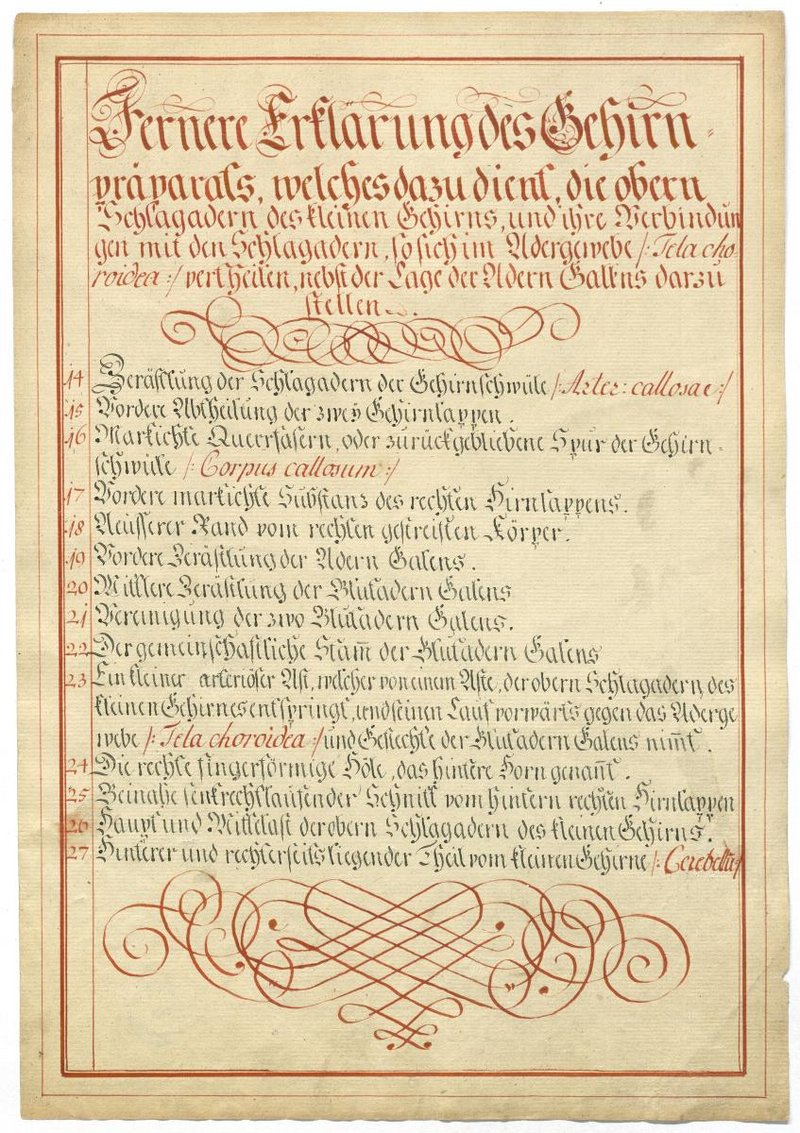 Fernere Erklärung des Gehirn-
präparats, welches dazu dient, die obern
Schlagadern des kleinen Gehirns, und ihre Verbindun
gen mit den Schlagadern, so sich im Adergewebe /: Tela cho-
roidea :/ vertheilen, nebst der Lage der Adern Galens darzu
stellen.
14 Zerästlung der Schlagadern der Gehirnschwüle /: Arter: callosae :/
15 Vordere Abtheilung der zweÿ Gehirnlappen.
16 Markichte Querfasern, oder zurückgebliebene Spur der Gehirn-
schwüle /: Corpus callosum :/
17 Vordere markichte Substanz des rechten Hirnlappens.
18 Aeusserer Rand vom rechten gestreiften Körper.
19 Vordere Zerästlung der Adern Galens.
20 Mittlere Zerästlung der Blutadern Galens
21 Vereinigung der zwo Blutadern Galens.
22 Der gemeinschaftliche Stam̅ der Blutadern Galens
23 Ein kleiner arteriöser Ast, welcher von einem Aste, der obern Schlagadern des
kleinen Gehirnes entspringt, und seinen Lauf vorwärts gegen das Aderge
webe /: Tela choroidea :/ und Geflechte der Blutadern Galens nim̅t.
24 Die rechte fingerförmige Höle, das hintere Horn genan̅t.
25 Beinahe senkrechtlaufender Schnitt vom hintern rechten Hirnlappen
26 Haupt und Mittelast der obern Schlagadern des kleinen Gehirns.
27 Hinterer und rechterseits liegender Theil vom kleinen Gehirne /: Cerebellu̅ :/